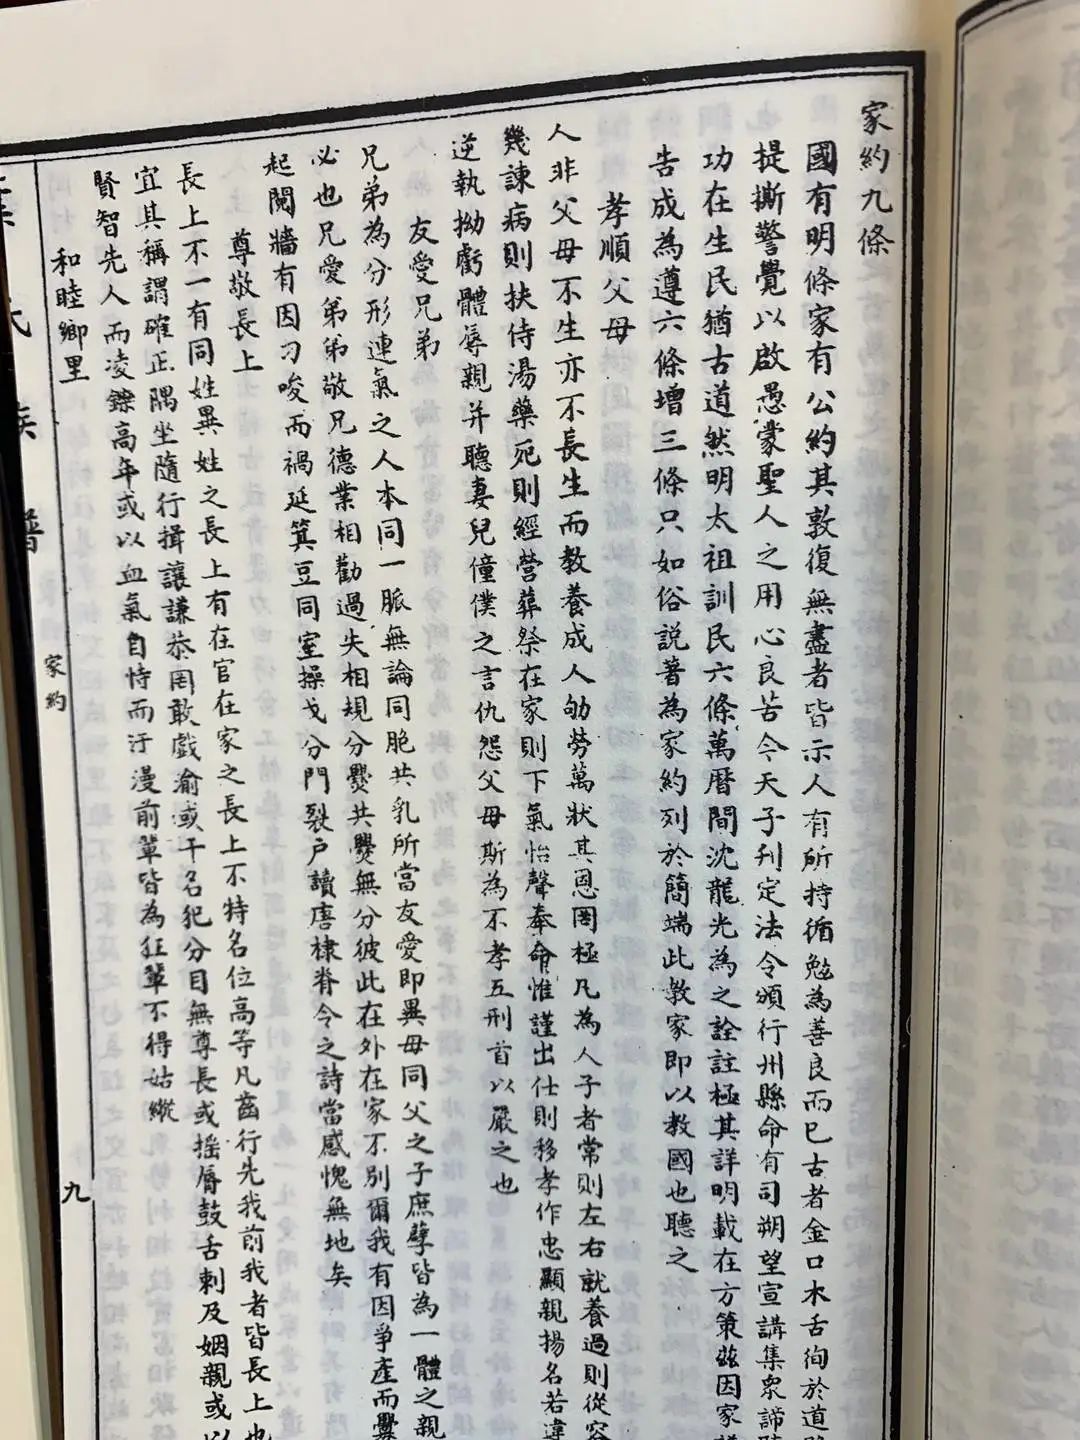 家約九條
國有明條家有公約其敦復無盡者皆示人有所持循勉為善良而已古者金口木舌徇於道
提撕警覺以啟愚蒙聖人之用心良苦今天子刋定法令頒行州縣命有司朔望宣講集眾諦
功在生民猶古道然明太祖訓民六條萬曆間沈龍光為之詮註極其詳明載在方策茲因家
告成為遵六條增三條只如俗説著為家約列於簡端此教家即以教國也聽之
孝順父母
人非父母不生亦不長生而教養成人劬勞萬狀其恩罔極凡為人子者常則左右就養過則從容
幾諫病則扶侍湯藥死則經營葬祭在家則下氣怡聲奉命惟謹出仕則移孝作忠顯親揚名若違
逆執拗虧體辱親并聽妻兒僮僕之言仇怨父母斯為不孝五刑首以嚴之也
友愛兄弟
兄弟為分形連氣之人本同一脈無論同胞共乳所當友愛即異母同父之子庶孽皆為一體之親
必也兄愛弟弟敬兄德業相勸過失相規分爨共爨無分彼此在外在家不別爾我有因爭產而
起鬩牆有因刁唆而禍延箕豆同室操戈分門裂户讀唐棣脊令之詩當感愧無地矣
尊敬長上
長上不一有同姓異姓之長上有在官在家之長上不特名位高等凡齒行先我前我者皆長上也
宜其稱謂確正隅坐隨行揖讓謙恭罔敢戲渝或干名犯分目無尊長或摇脣鼓舌刺及姻親或以
賢智先人而凌鑠高年或以血氣自恃而汙漫前輩皆為狂輩不得姑縱
和睦鄉里
氏族譜
家約
九